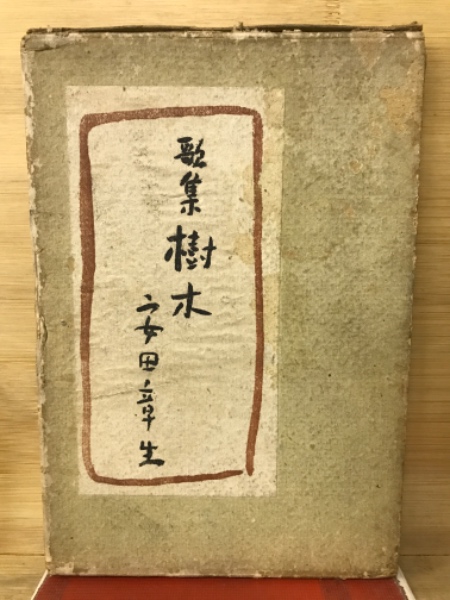 歌集 樹木
安田章生